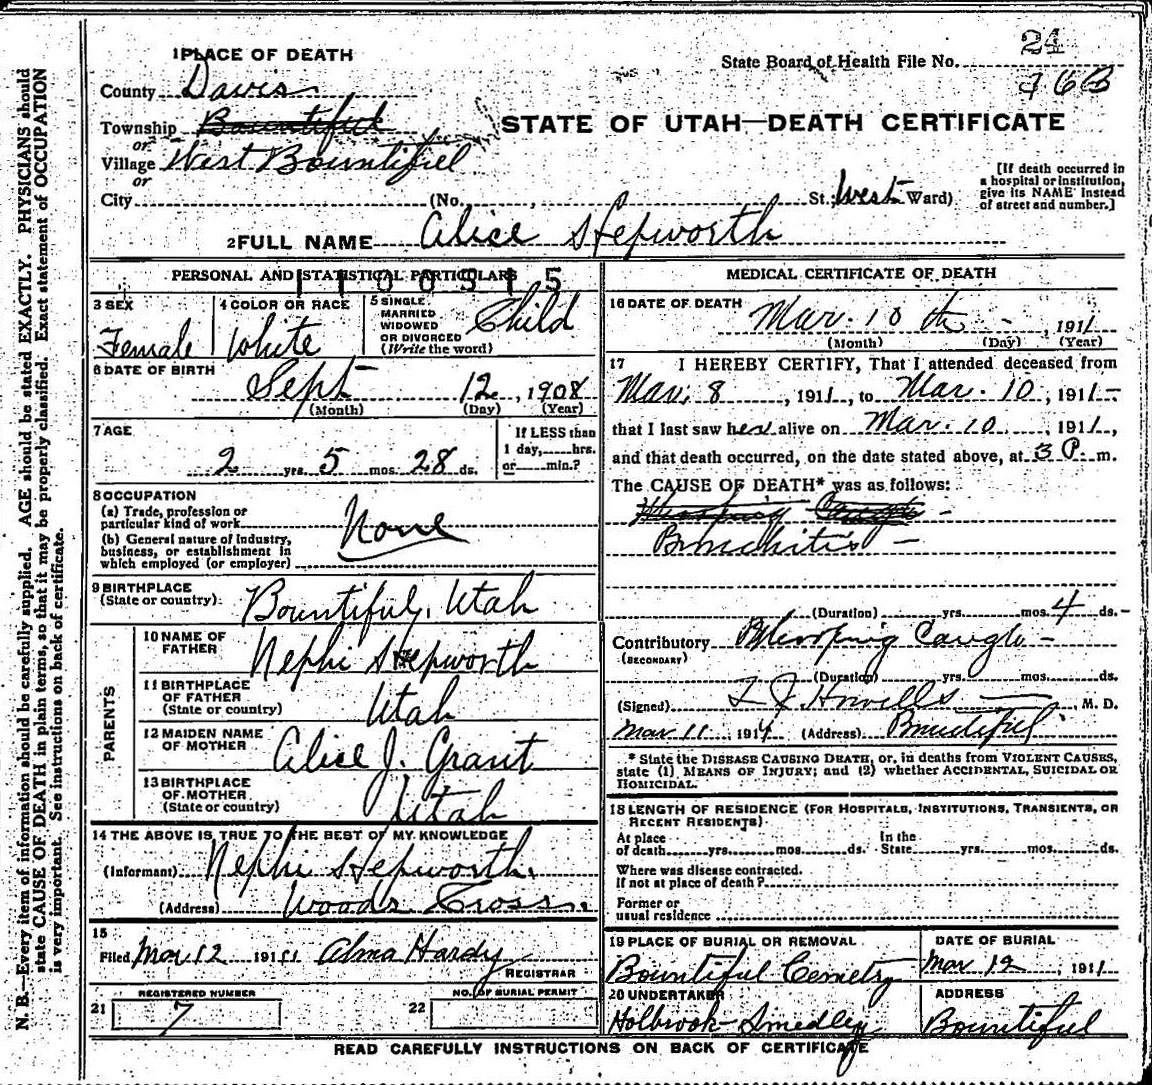 24
State Board of Health File No. 16B
1 PLACE OF DEATH
County Davis
Township Bountiful
or
Village West Bountiful
or
City (No. , St; West Ward)
STATE OF UTAH—DEATH CERTIFICATE
[If death occurred in
a hospital or institution,
give its NAME instead
of street and number.]
2 FULL NAME Alice Hepworth
PERSONAL AND STATISTICAL PARTICULARS
1100515
3 SEX
Female
4 COLOR OR RACE
White
5 SINGLE
MARRIED
WIDOWED
OR DIVORCED
(Write the word)
Child
6 DATE OF BIRTH
Sept 12, 1908
(Month) (Day) (Year)
7 AGE
2 yrs. 5 mos. 28 ds.
If LESS than
1 day, hrs.
or min.?
8 OCCUPATION
(a) Trade, profession or
particular kind of work
(b) General nature of industry,
business, or establishment in
which employed (or employer)
None
9 BIRTHPLACE
(State or country)
Bountiful, Utah
PARENTS
10 NAME OF
FATHER
Nephi Hepworth
11 BIRTHPLACE
OF FATHER
(State or country)
Utah
12 MAIDEN NAME
OF MOTHER
Alice J. Grant
13 BIRTHPLACE
OF MOTHER
(State or country)
Utah
14 THE ABOVE IS TRUE TO THE BEST OF MY KNOWLEDGE
(Informant) Nephi Hepworth.
(Address) Woods Cross.
15
Filed Mar 12 1911 Alma Hardy
REGISTRAR
21 REGISTERED NUMBER
7
22 NO. OF BURIAL PERMIT
MEDICAL CERTIFICATE OF DEATH
16 DATE OF DEATH
Mar. 10 th - , 1911
(Month) (Day) (Year)
17 I HEREBY CERTIFY, That I attended deceased from
Mar. 8, 1911, to Mar. 10, 1911
that I last saw her alive on Mar. 10, 1911,
and that death occurred, on the date stated above, at 3 P. m.
The CAUSE OF DEATH* was as follows:
Whooping Cough -
Bronchitis -
(Duration) yrs. mos. 4 ds.
Contributory Whooping Cough -
(SECONDARY)
(Duration) yrs. mos. ds.
(Signed) Howells M. D.
Mar 11 1914 (Address) Bountiful
* State the DISEASE CAUSING DEATH, or, in deaths from VIOLENT CAUSES,
state (1) MEANS OF INJURY; and (2) whether ACCIDENTAL, SUICIDAL OR
HOMICIDAL.
18 LENGTH OF RESIDENCE (FOR HOSPITALS, INSTITUTIONS, TRANSIENTS, OR
RECENT RESIDENTS)
At place
of death yrs. mos. ds.
In the
State yrs. mos. ds.
Where was disease contracted.
If not at place of death?
Former or
usual residence
19 PLACE OF BURIAL OR REMOVAL
Bountiful Cemetry
DATE OF BURIAL
Mar 12, 1911
20 UNDERTAKER
Holbrook-Smedley
ADDRESS
Bountiful
READ CAREFULLY INSTRUCTIONS ON BACK OF CERTIFICATE
N. B.—Every item of information should be carefully supplied. AGE should be stated EXACTLY. PHYSICIANS should
state CAUSE OF DEATH in plain terms, so that it may be properly classified. Exact statement of OCCUPATION
is very important. See instructions on back of certificate.